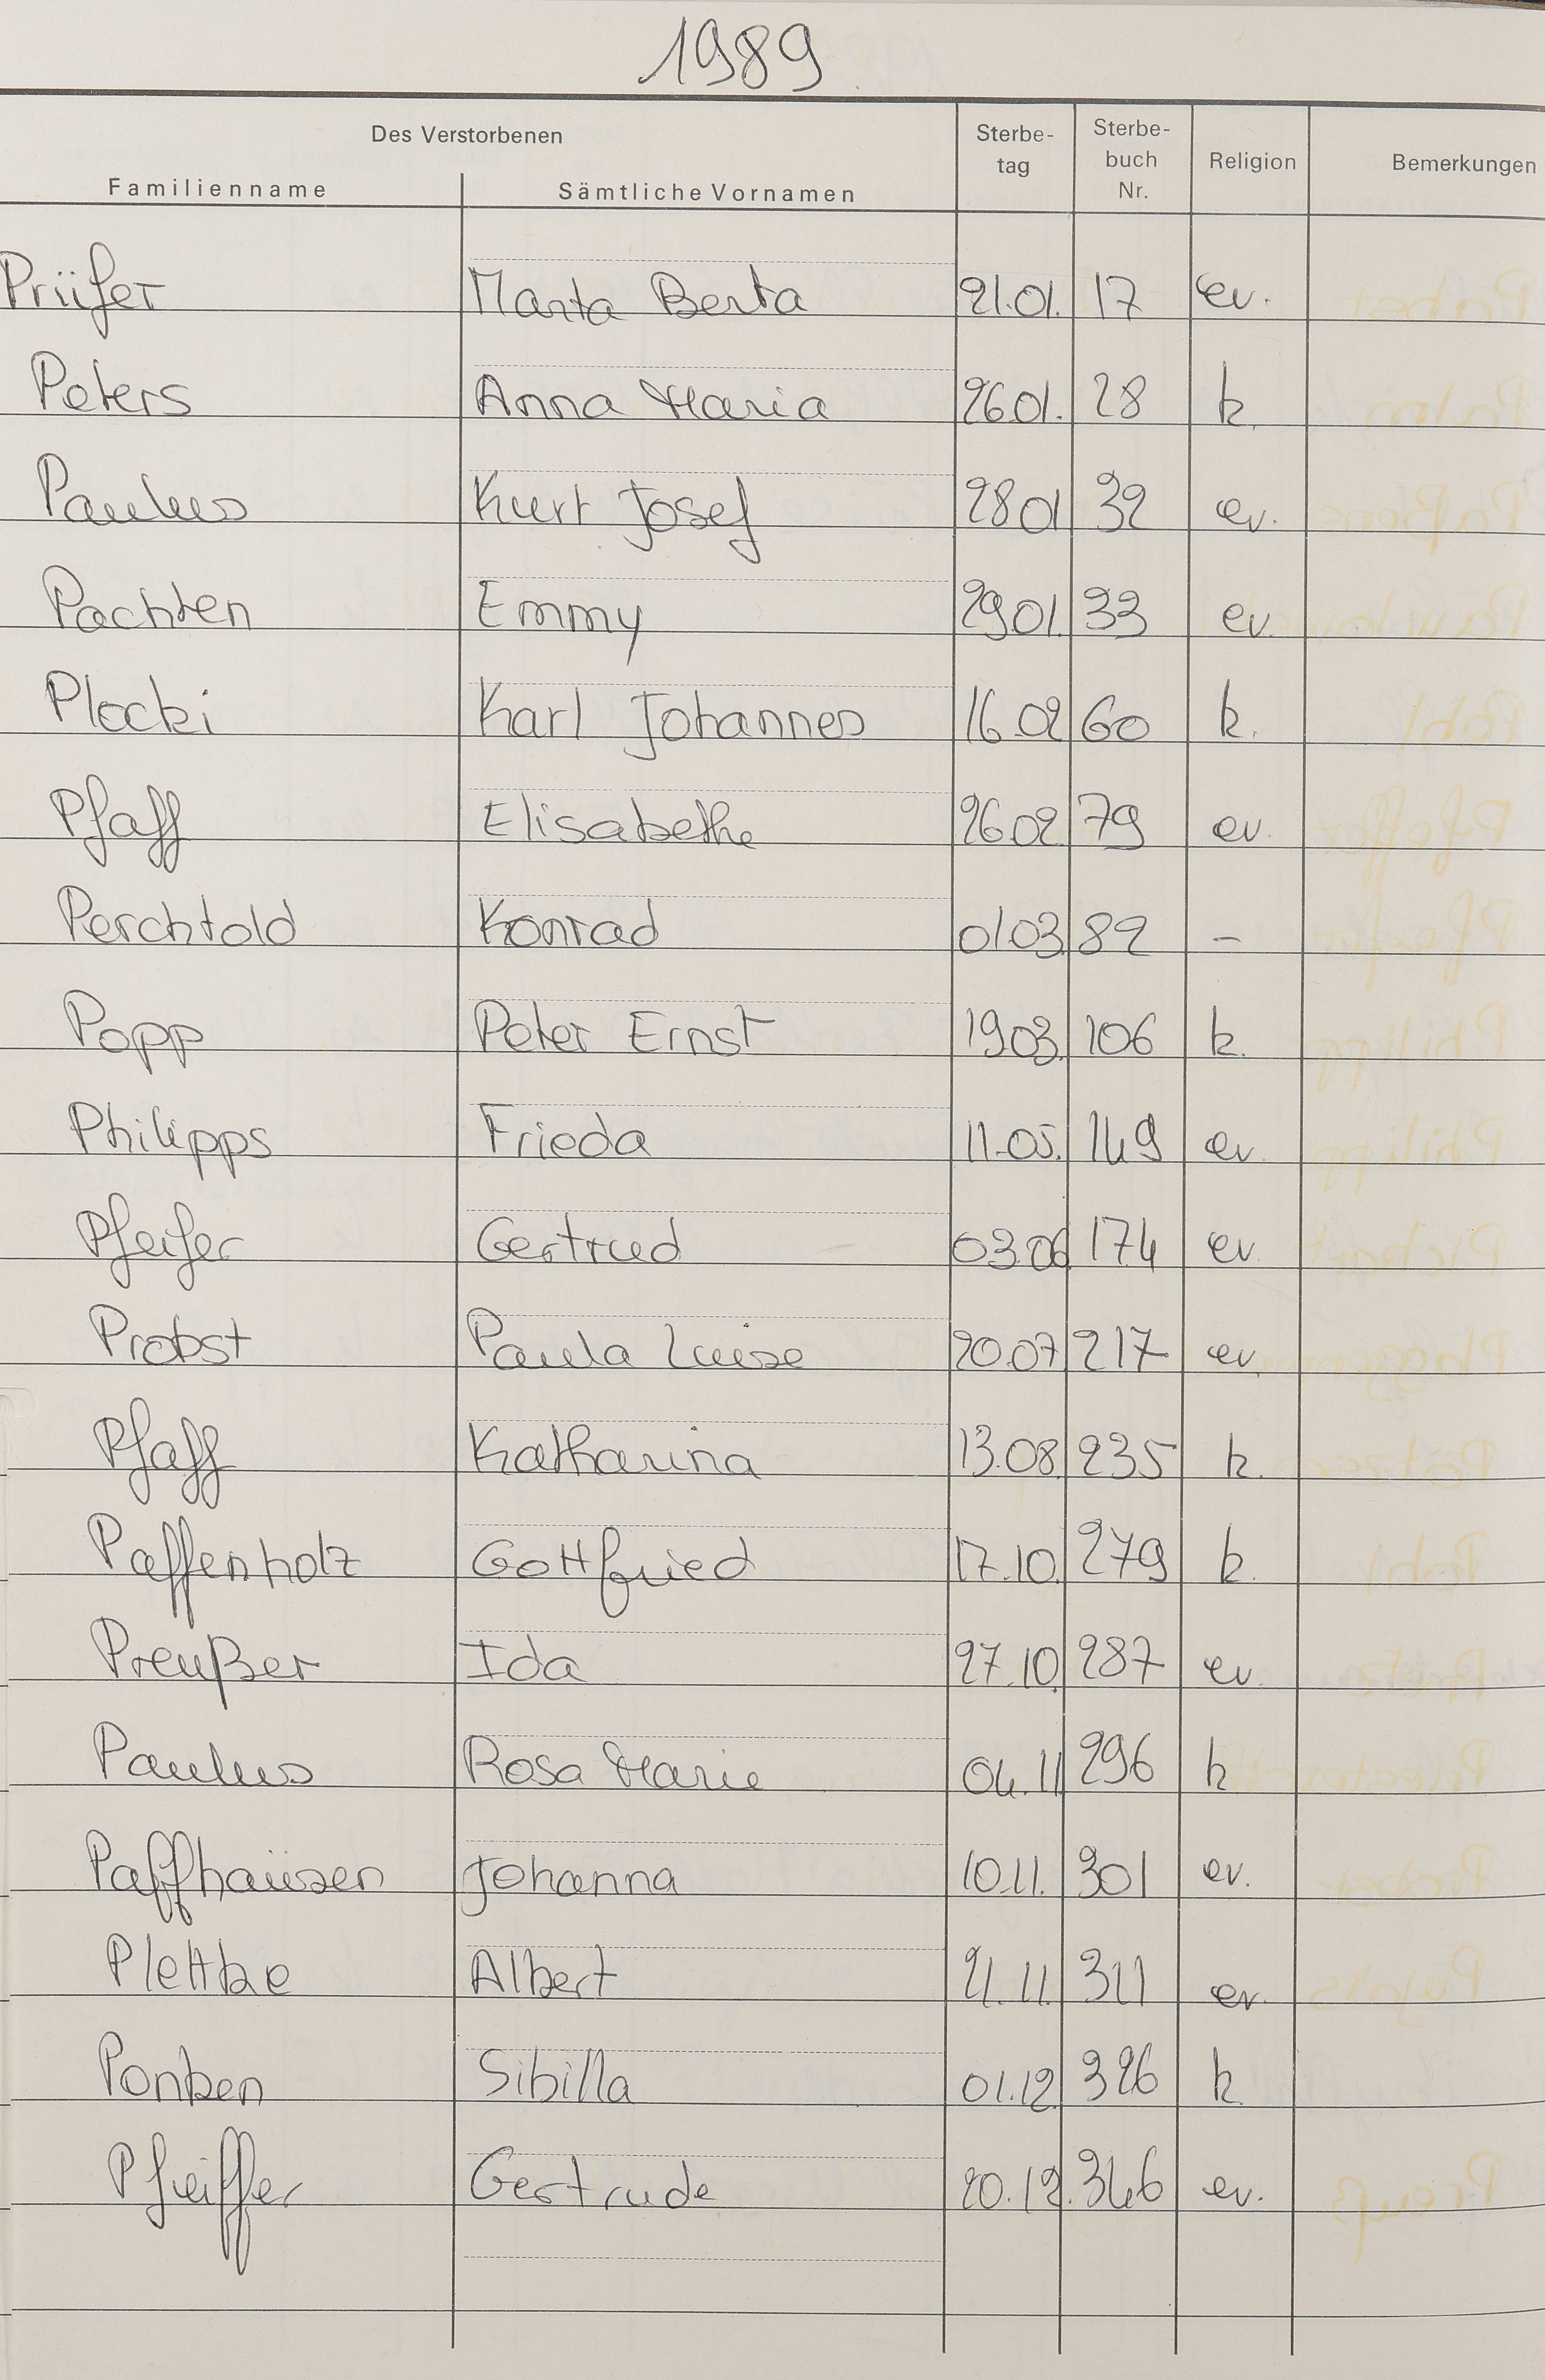 1989
Des Verstorbenen
Familienname Sämtliche Vornamen Sterbe-tag Sterbe-buch Nr. Religion Bemerkungen
Prüfer Marta Berta 21.01. 17 ev.
Peters Anna Maria 26.01. 28 k.
Paulus Kurt Josef 28.01 32 ev.
Pachten Emmy 29.01. 33 ev.
Plocki Karl Johannes 16.02 60 k.
Pfaff Elisabethe 26.02 79 ev.
Perchtold Konrad 01.03. 82 –
Popp Peter Ernst 19.03. 106 k.
Philipps Frieda 11.05. 149 ev.
Pfeifer Gertrud 03.06 174 ev.
Probst Paula Luise 20.07 217 ev.
Pfaff Katharina 13.08. 235 k.
Paffenholz Gottfried 17.10. 279 k.
Preußer Ida 27.10. 287 ev.
Paulus Rosa Marie 04.11 296 k
Paffhaüsen Johanna 10.11. 301 ev.
Plettke Albert 21.11. 311 ev.
Ponken Sibilla 01.12. 326 k
Pfeiffer Gertrude 20.12. 346 ev.